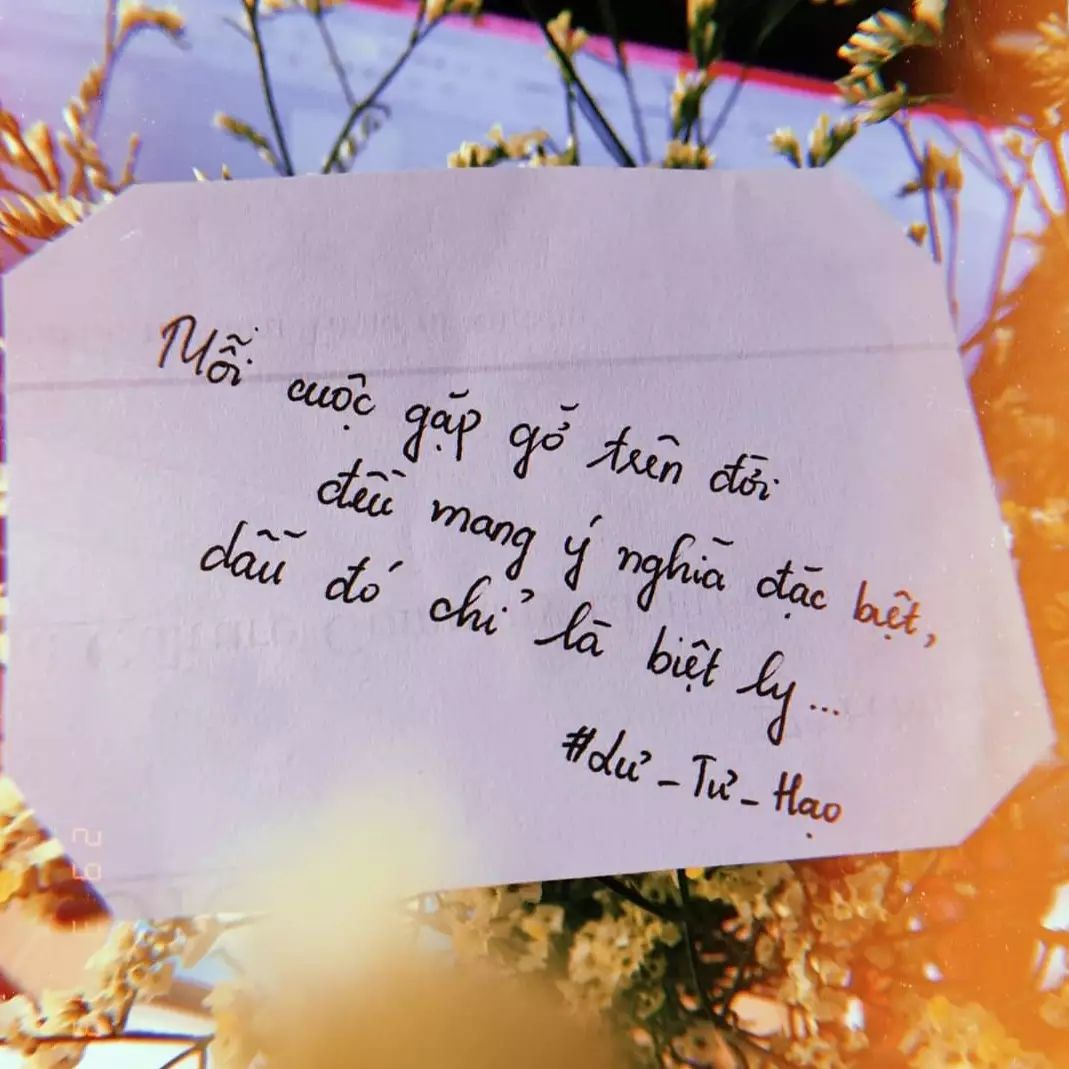 Mỗi cuộc gặp gỡ trên đời
đều mang ý nghĩa đặc biệt,
dẫu đó chỉ là biệt ly...
#dư_Tư_Hạo